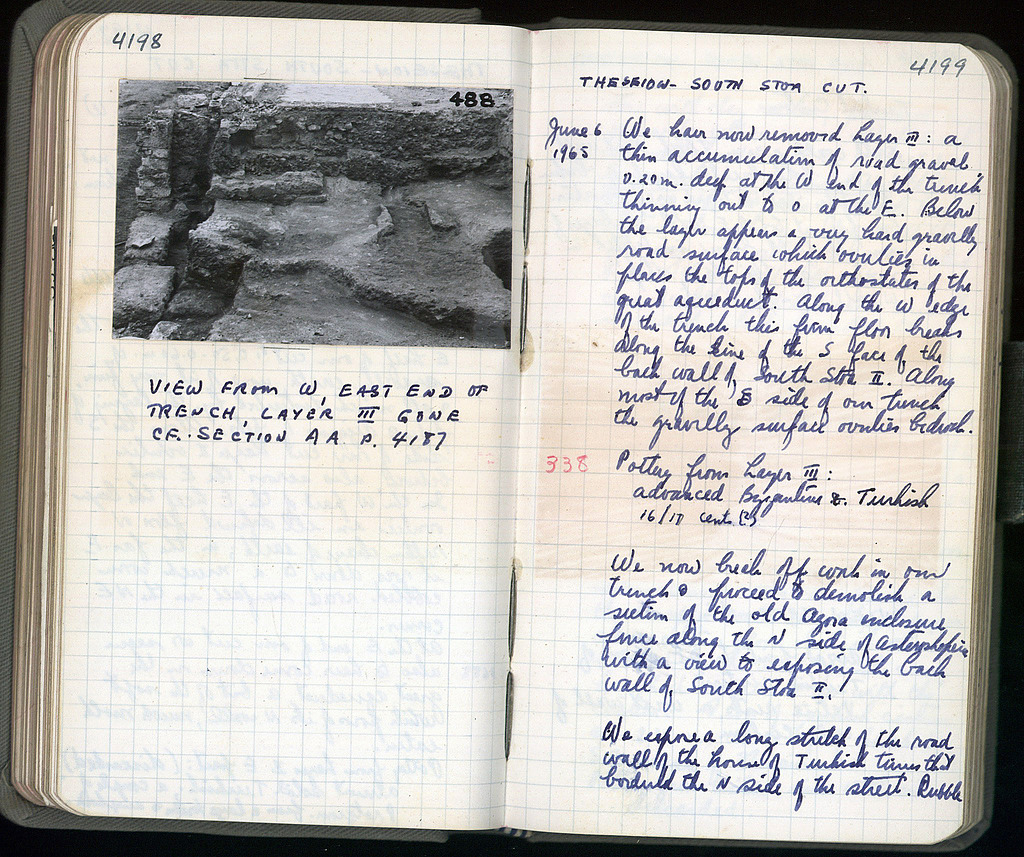 4198
488
VIEW FROM W, EAST END OF
TRENCH, LAYER III GONE
CF. SECTION AA P. 4187
4199
THESEION - SOUTH STOA CUT.
June 6 We have now removed Layer III: a
1965 thin accumulation of road gravel
0.20m. deep at the W end of the trench
thinning out to 0 at the E. Below
the layer appears a very hard gravelly
road surface which overlies in
places the tops of the orthostates of the
great aqueduct. Along the W edge
of the trench this firm floor breaks
along the line of the S face of the
back wall of South Stoa II. Along
most of the side of our trench
the gravelly surface overlies bedrock.
338 Pottery from Layer III:
advanced Byzantine & Turkish
16/17 cents. (?)
We now break off work in our
trench & proceed to demolish a
section of the old Agora enclosure
fence along the N side of Asteroskopeiou
with a view to exposing the back
wall of South Stoa II.
We expose a long stretch of the road
wall of the house of Turkish times that
bordered the N side of the street. Rubble